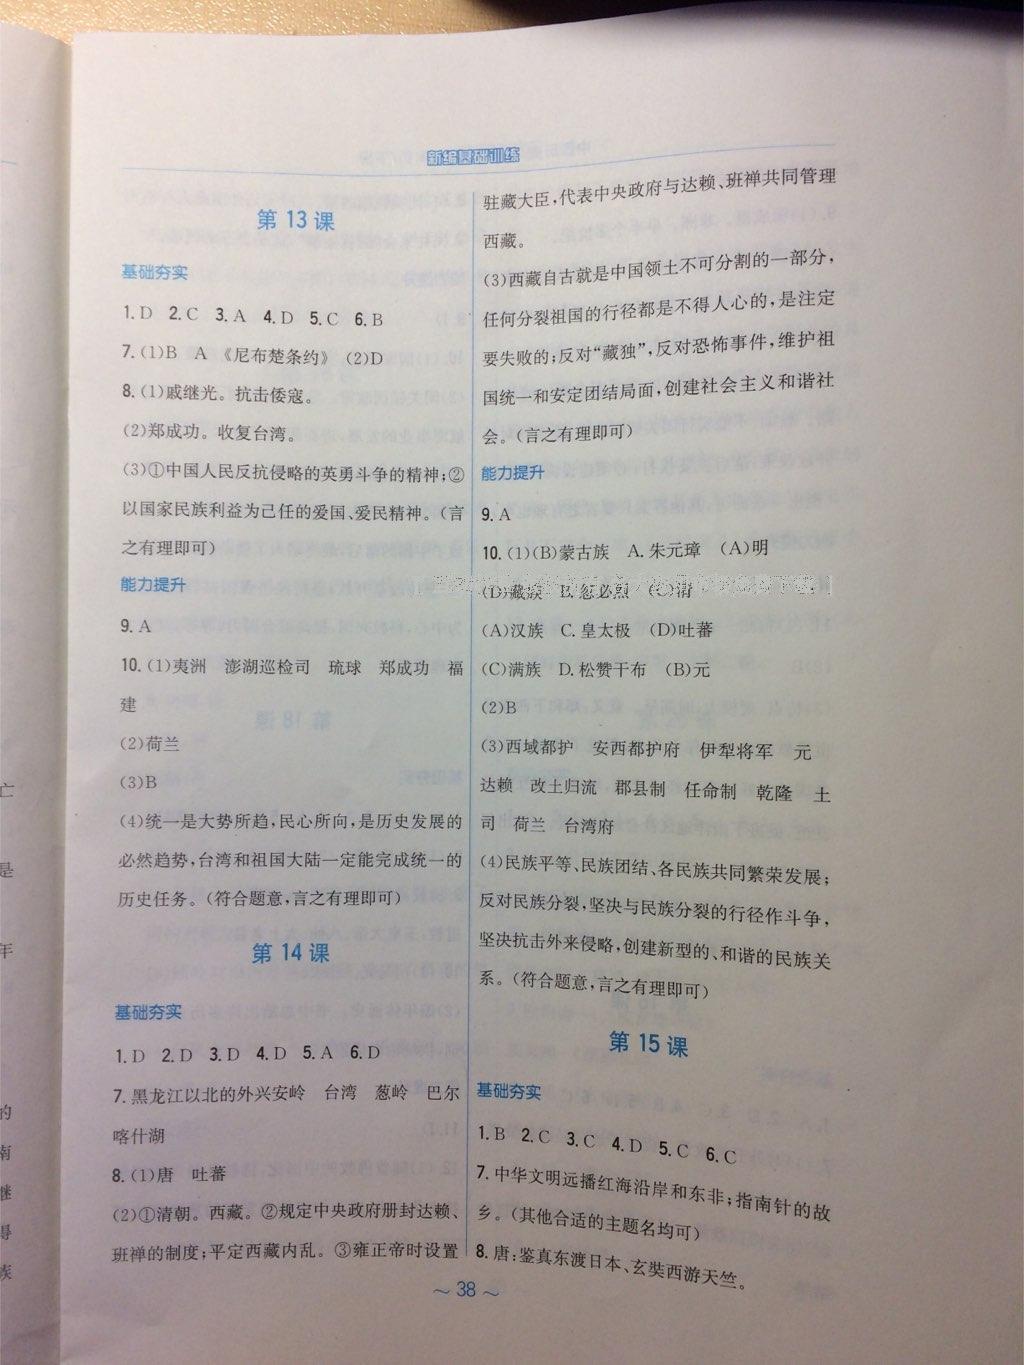 新编基础训练
第 13 课
基础夯实
1. D 2. C 3. A 4. D 5. C 6. B
7. (1)B A 《尼布楚条约》 (2)D
8. (1)戚继光。抗击倭寇。
(2)郑成功。收复台湾。
(3)①中国人民反抗侵略的英勇斗争的精神;②
以国家民族利益为己任的爱国、爱民精神。(言
之有理即可)
能力提升
9. A
10. (1)夷洲 澎湖巡检司 琉球 郑成功 福
建
(2)荷兰
(3)B
(4)统一是大势所趋,民心所向,是历史发展的
必然趋势,台湾和祖国大陆一定能完成统一的
历史任务。(符合题意,言之有理即可)
第 14 课
基础夯实
1. D 2. D 3. D 4. D 5. A 6. D
7. 黑龙江以北的外兴安岭 台湾 葱岭 巴尔
喀什湖
8. (1)唐 吐蕃
(2)①清朝。西藏。②规定中央政府册封达赖、
班禅的制度;平定西藏内乱。③雍正帝时设置
驻藏大臣,代表中央政府与达赖、班禅共同管理
西藏。
(3)西藏自古就是中国领土不可分割的一部分,
任何分裂祖国的行径都是不得人心的,是注定
要失败的;反对“藏独”,反对恐怖事件,维护祖
国统一和安定团结局面,创建社会主义和谐社
会。(言之有理即可)
能力提升
9. A
10. (1)(B)蒙古族 A. 朱元璋 (A)明
(D)藏族 B. 忽必烈 (C)清
(A)汉族 C. 皇太极 (D)吐蕃
(C)满族 D. 松赞干布 (B)元
(2)B
(3)西域都护 安西都护府 伊犁将军 元
达赖 改土归流 郡县制 任命制 乾隆 土
司 荷兰 台湾府
(4)民族平等、民族团结、各民族共同繁荣发展;
反对民族分裂,坚决与民族分裂的行径作斗争,
坚决抗击外来侵略,创建新型的、和谐的民族关
系。(符合题意,言之有理即可)
第 15 课
基础夯实
1. B 2. C 3. C 4. D 5. C 6. C
7. 中华文明远播红海沿岸和东非;指南针的故
乡。(其他合适的主题名均可)
8. 唐:鉴真东渡日本、玄奘西游天竺。
~ 38 ~
亡
是
年
的
南
继
得
族